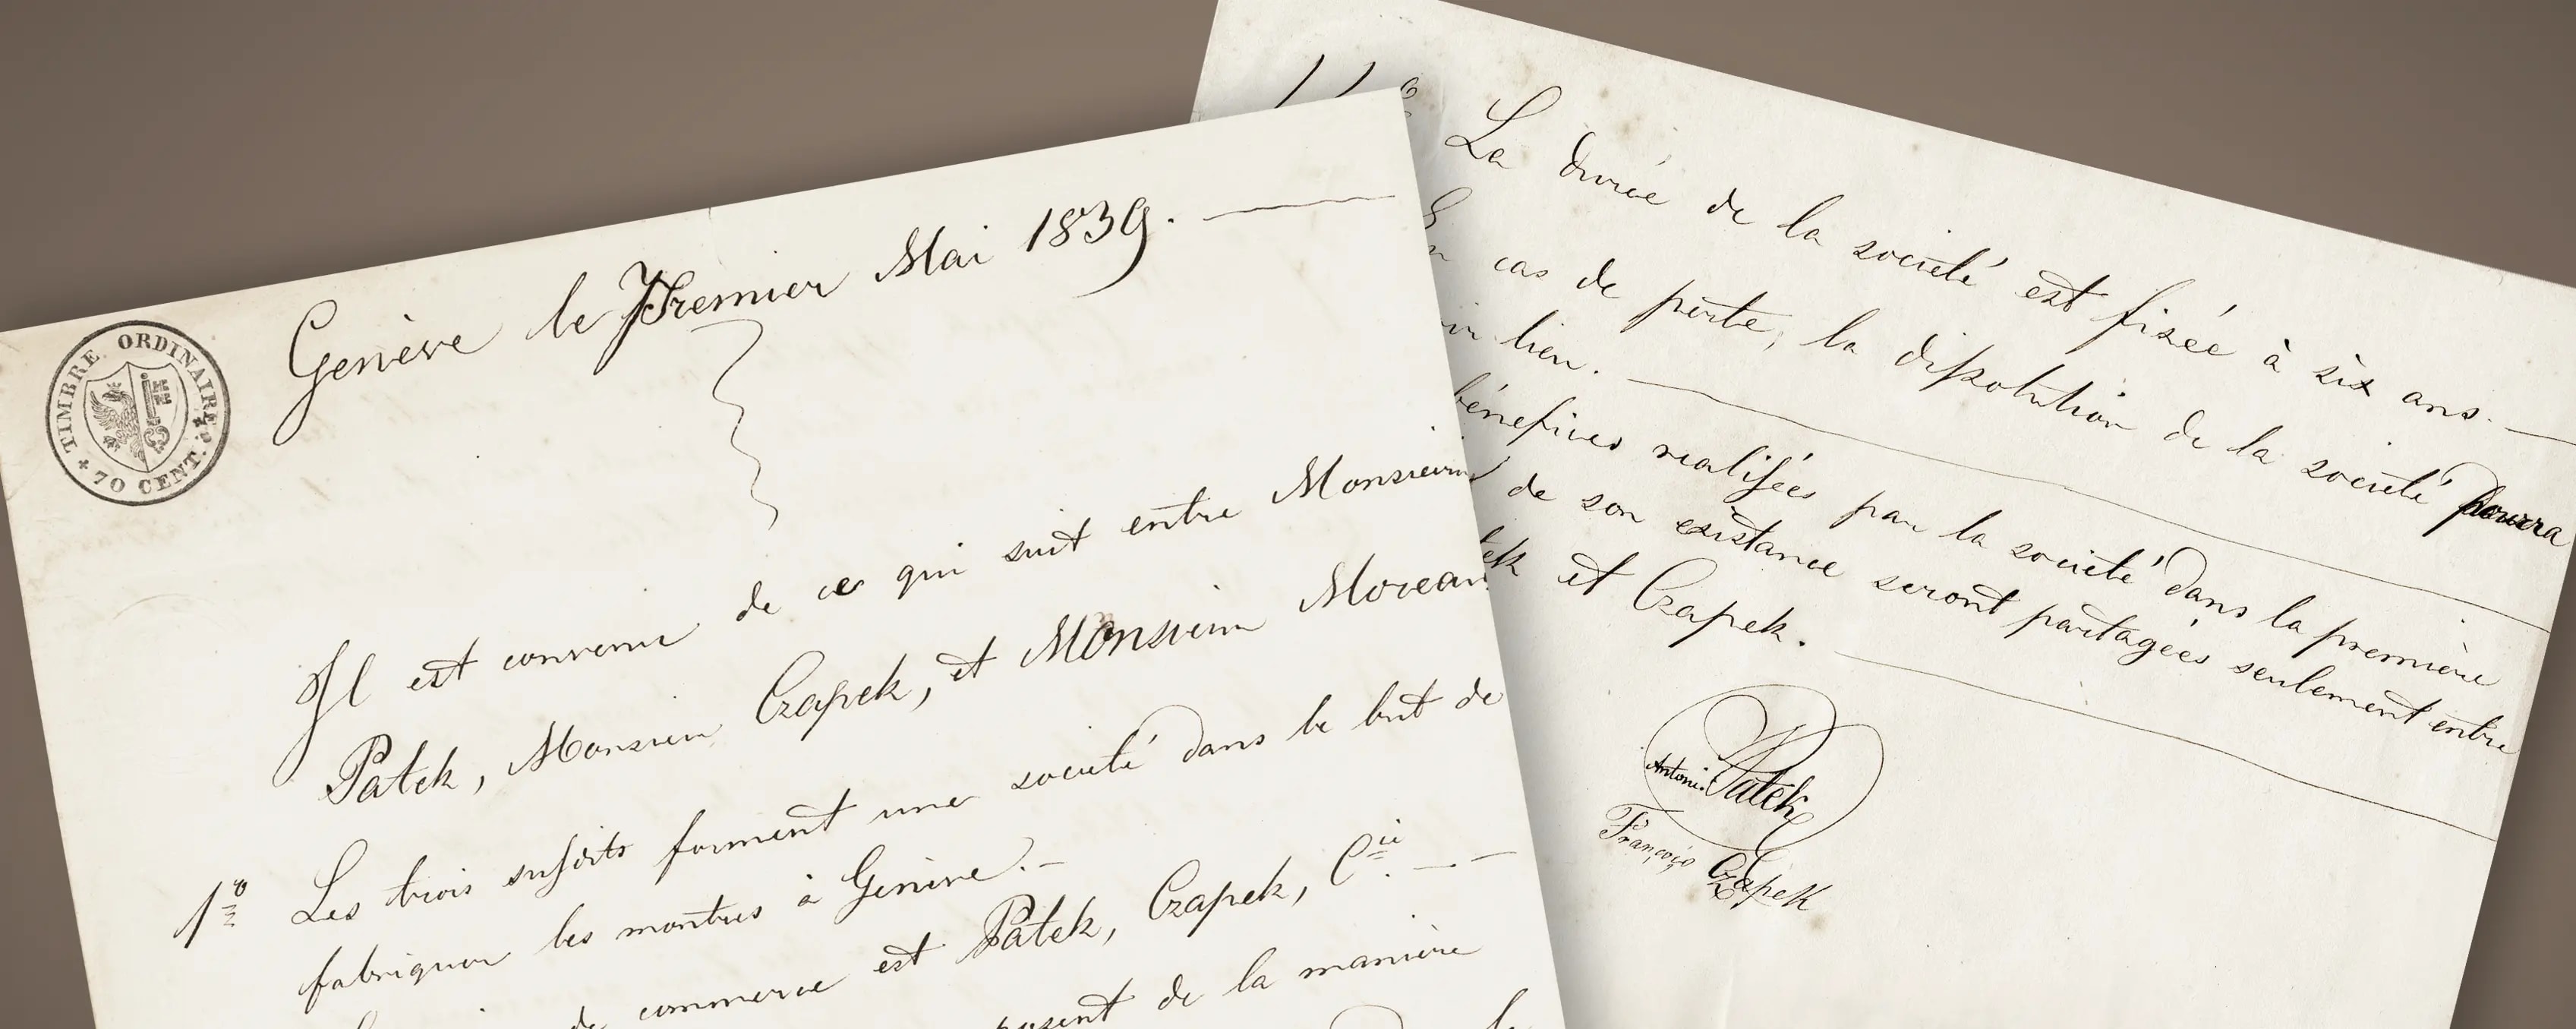 TIMBRE ORDINAIRE.
70 CENT.
Genève le Premier Mai 1839.
Il est convenu de ce qui suit entre Monsieur
Patek, Monsieur Czapek, et Monsieur Moreau
1º Les trois susdits forment une société dans le but de
fabriquer les montres à Genève.
de commerce est Patek, Czapek, Cie
de la manière
11º La durée de la société est fixée à six ans.
En cas de perte, la dissolution de la société pourra
lieu.
bénéfices realisées par la société dans la première
de son existance seront partagées seulement entre
et Czapek.
Antoni Patek
François Czapek